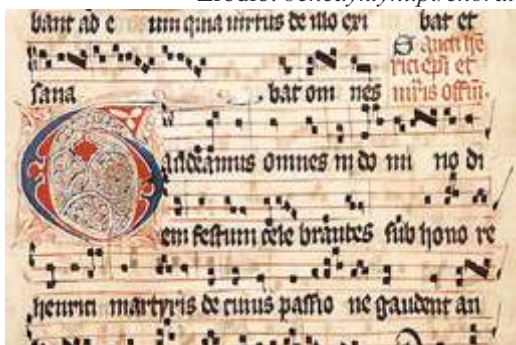 bant ad e um quia uirtus de illo exi bat et
Sancti he
rici epi et
sana bat om nes mris offm.
Gaudeamus omnes in do mi no di
em festum cele brantes sub hono re
henrici martyris de cuius passio ne gaudent an